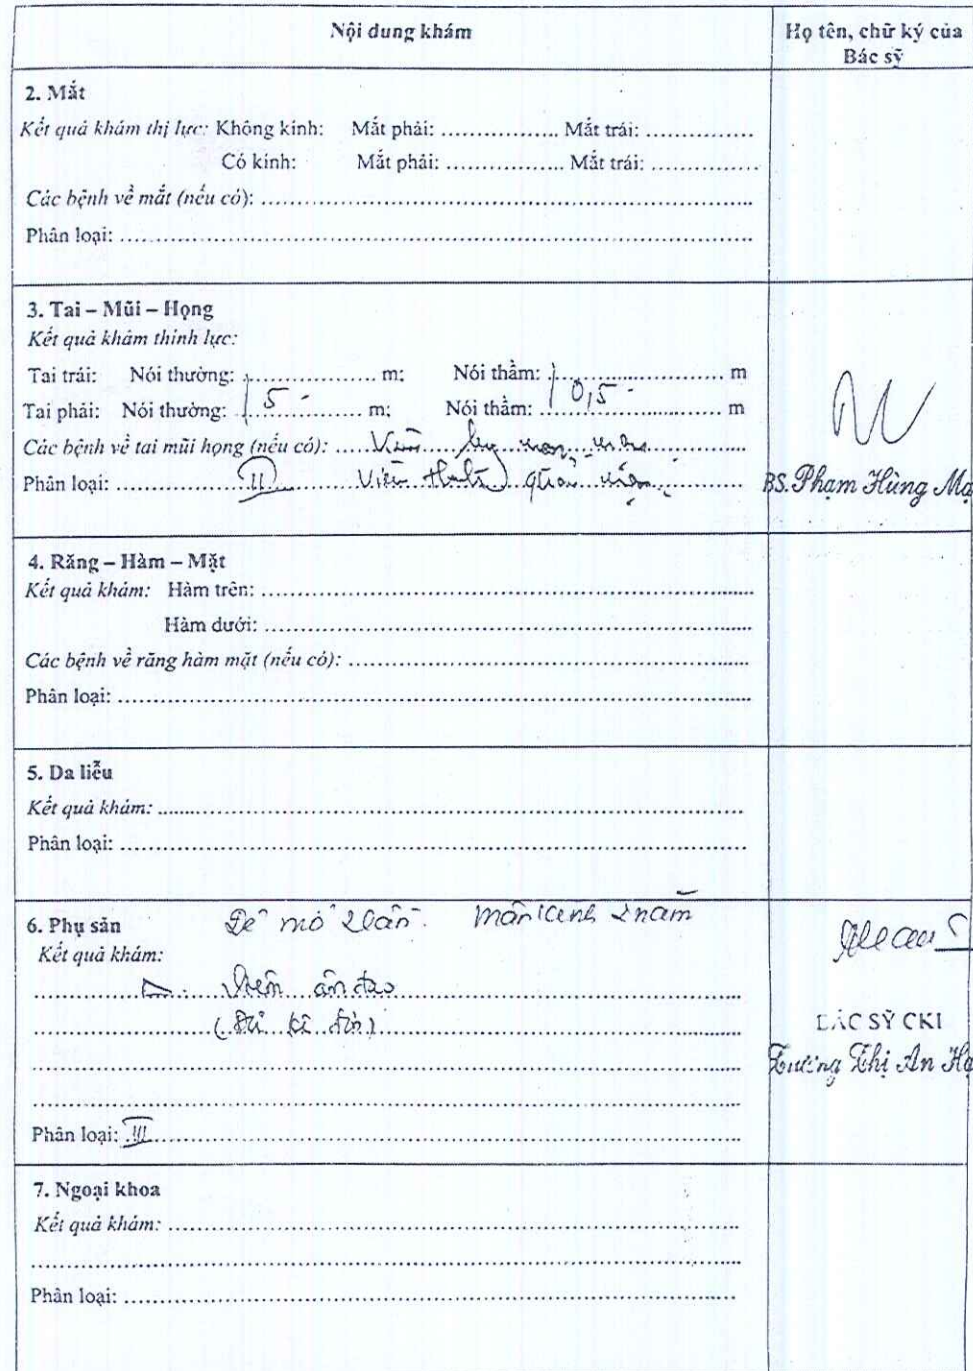 Nội dung khám
Họ tên, chữ ký của
Bác sỹ
2. Mắt
Kết quả khám thị lực: Không kính: Mắt phải: ................. Mắt trái: ................
Có kính: Mắt phải: ................. Mắt trái: ................
Các bệnh về mắt (nếu có): ................
Phân loại: ................
3. Tai – Mũi – Họng
Kết quả khám thính lực:
Tai trái: Nói thường: ................ m; Nói thầm: ................ m
5 0,5
Tai phải: Nói thường: ................ m; Nói thầm: ................ m
Các bệnh về tai mũi họng (nếu có): Viêm
Phân loại: II Viêm quản
BS. Phạm Hùng
4. Răng – Hàm – Mặt
Kết quả khám: Hàm trên: ................
Hàm dưới: ................
Các bệnh về răng hàm mặt (nếu có): ................
Phân loại: ................
5. Da liễu
Kết quả khám: ................
Phân loại: ................
6. Phụ sản Đẻ mổ 2 lần. Mãn kinh 2 năm
Kết quả khám:
Viêm âm đạo
BÁC SỸ CKI
Thị An
Phân loại: III
7. Ngoại khoa
Kết quả khám: ................
Phân loại: ................